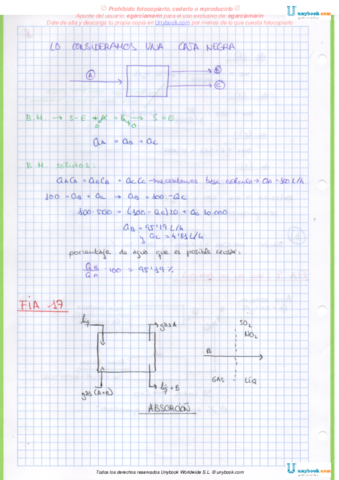 Prohibido fotocopiarlo, cederlo o reproducirlo
Apuntes del usuario: egarciamarin para el uso exclusivo de: egarciamarin
Date de alta y descarga tu propia copia en Unybook.com por menos de lo que cuesta fotocopiarlo
Unybook.com
LO CONSIDERAMOS UNA CAJA NEGRA
A
B
C
QA = QB + QC
100 = QB + QC → QB = 100 - QC
100·500 = (100-QC)·10 + QC 10.000
QB = 95'19 L/h
y QC = 4'81 L/h
porcentaje de agua que es posible reciclar:
QB/QA · 100 = 95'19 %
FIA 17
liq
gas A
SO2
NO2
B
GAS
LIQ
gas (A+B)
liq + B
ABSORCIÓN
Todos los derechos reservados Unybook Worldwide S.L. © unybook.com
Unybook.com